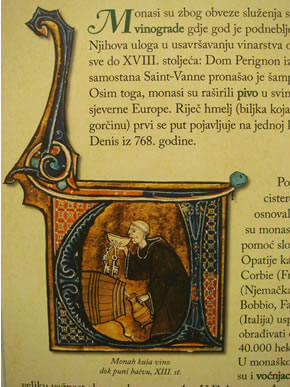 Monasi su zbog obveze služenja s
vinograde gdje god je podneblje
Njihova uloga u usavršavanju vinarstva o
sve do XVIII. stoljeća: Dom Perignon iz
samostana Saint-Vanne pronašao je šamp
Osim toga, monasi su raširili pivo u svin
sjeverne Europe. Riječ hmelj (biljka koja
gorčinu) prvi se put pojavljuje na jednoj l
Denis iz 768. godine.
Po
cisterc
osnoval
su monas
pomoć slo
Opatije ka
Corbie (Fr
(Njemačka
Bobbio, Fa
(Italija) usp
obrađivati o
40.000 hek
U monaško
su i voćnjac
Monah kuša vino
dok puni bačvu, XIII. st.